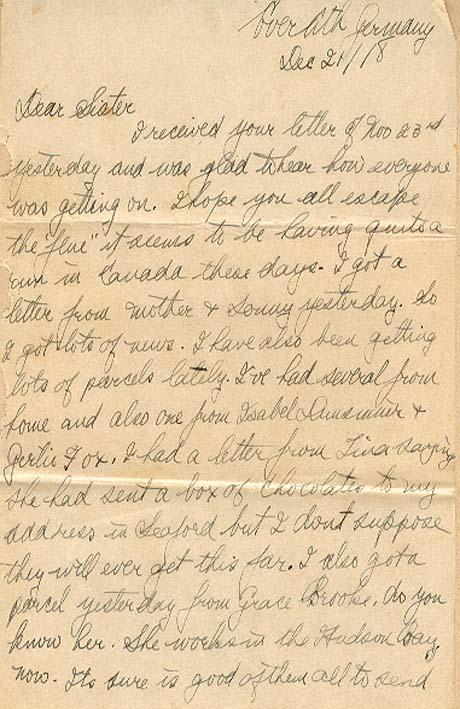 Over Ath Germany
Dec 21/18
Dear Sister
I received your letter of Nov 23rd
yesterday and was glad to hear how everyone
was getting on. I hope you all escape
the flue" it seems to be having quits a
run in Canada these days. I got a
letter from mother & Sonny yesterday. So
I got lots of news. I have also been getting
lots of parcels lately. I've had several from
home and also one from Isabel &
Gertie Fox. I had a letter from Tina saying
she had sent a box of chocolates to my
address in Seaford but I dont suppose
they will ever get this far. I also got a
parcel yesterday from Grace Brooke. do you
know her. She works in the Hudson Bay
now. Its sure is good of them all to send